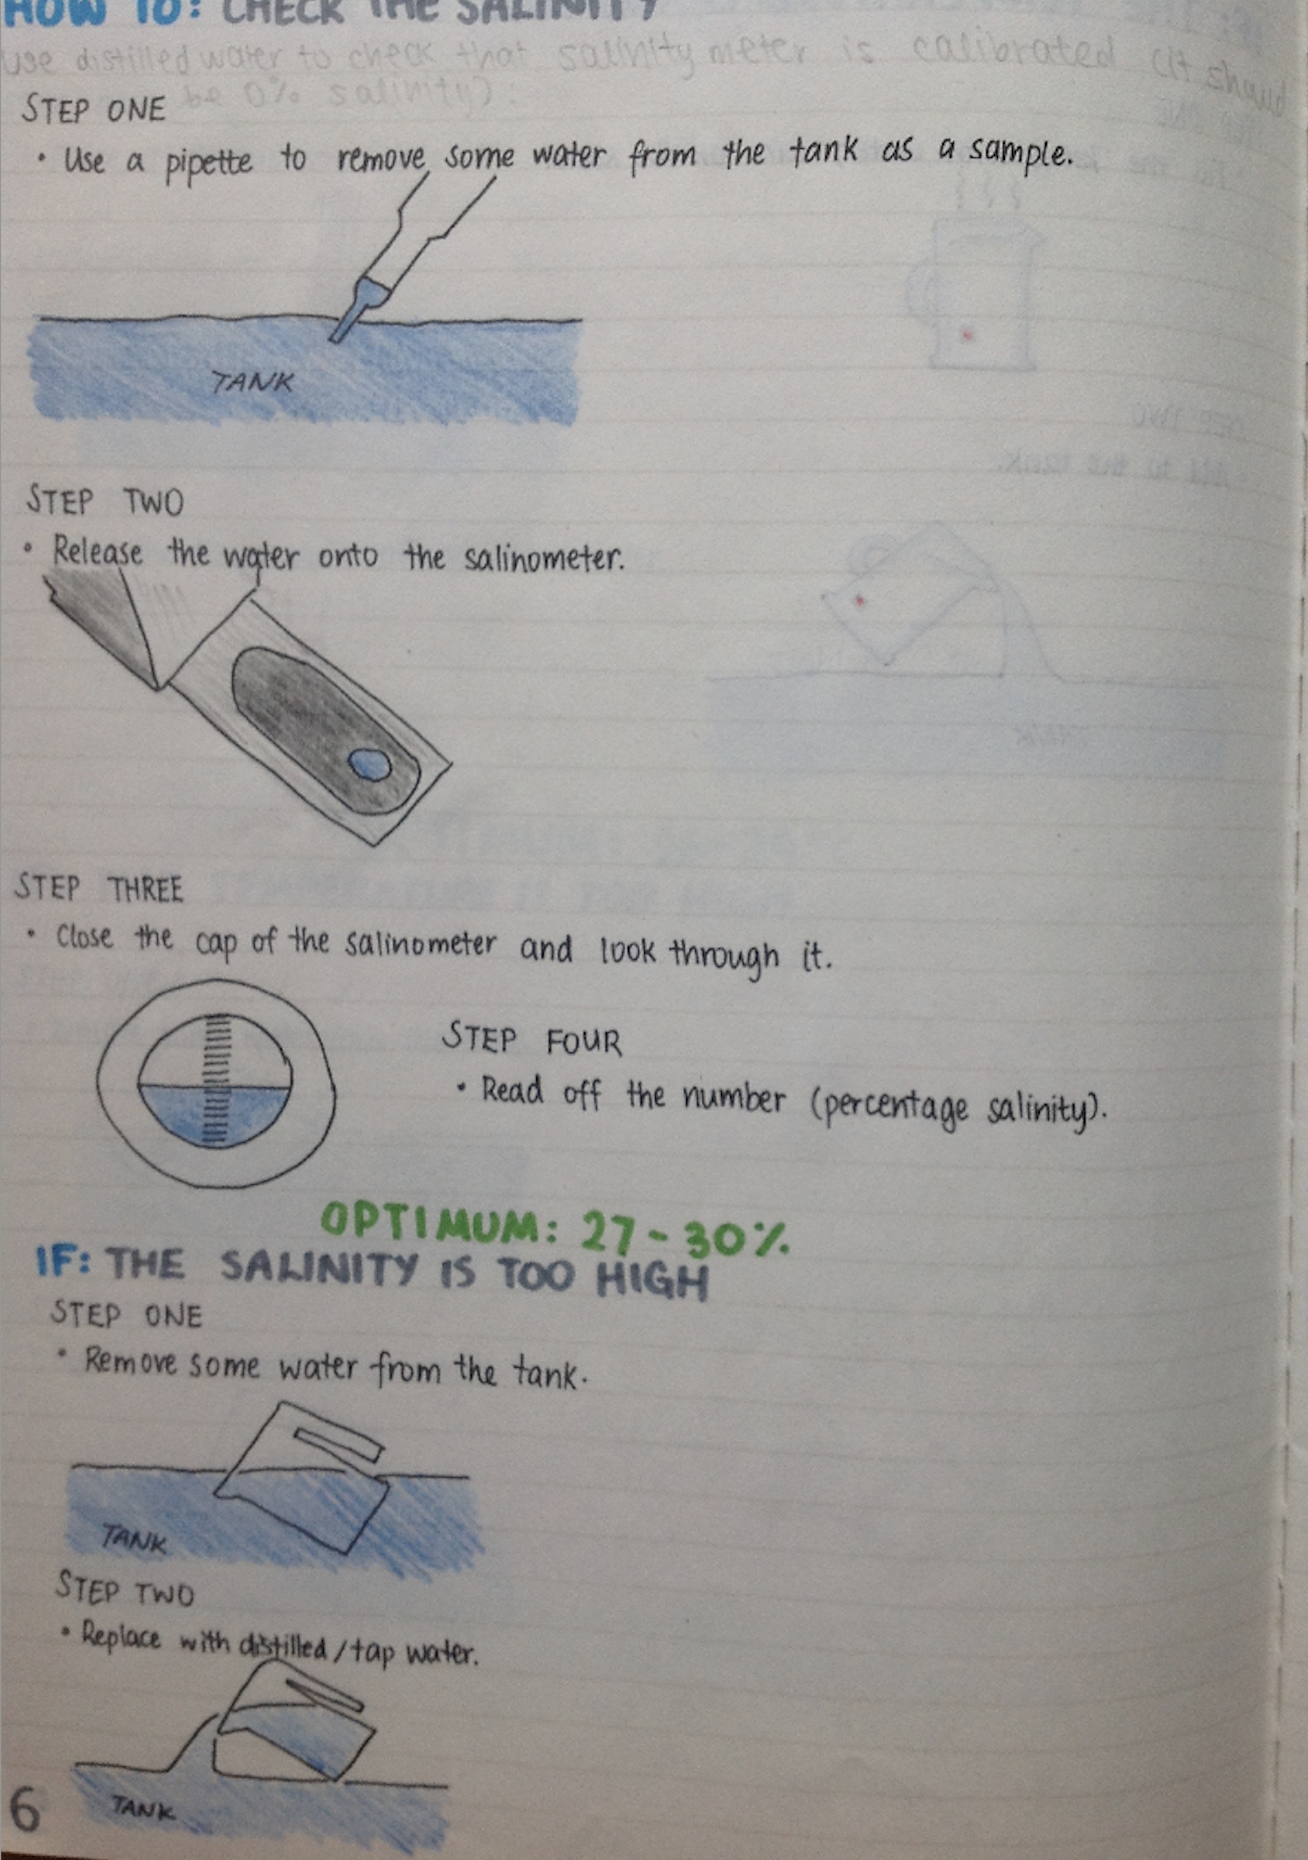 HOW TO: CHECK THE SALINITY
use distilled water to check that salinity meter is calibrated (it should
be 0% salinity)
STEP ONE
• Use a pipette to remove some water from the tank as a sample.
TANK
STEP TWO
• Release the water onto the salinometer.
STEP THREE
• Close the cap of the salinometer and look through it.
STEP FOUR
• Read off the number (percentage salinity).
OPTIMUM: 27-30%
IF: THE SALINITY IS TOO HIGH
STEP ONE
• Remove some water from the tank.
TANK
STEP TWO
• Replace with distilled/tap water.
TANK
6